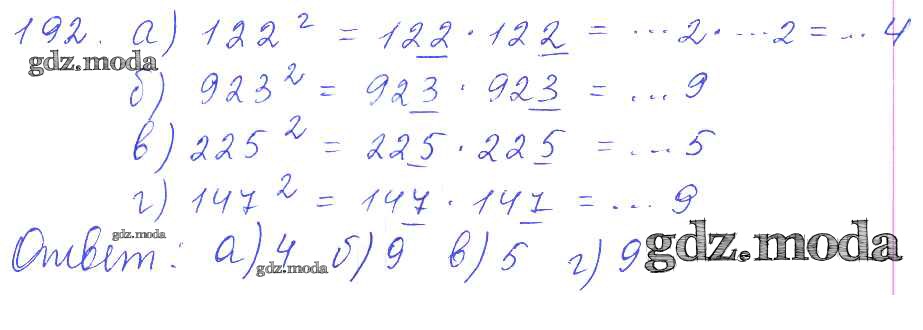 192. а) 122² = 122 · 122 = ...2 · ...2 = ...4
gdz.moda
б) 923² = 923 · 923 = ...9
в) 225² = 225 · 225 = ...5
г) 147² = 147 · 147 = ...9
gdz.moda
Ответ: а) 4 б) 9 в) 5 г) 9
gdz.moda
gdz.moda